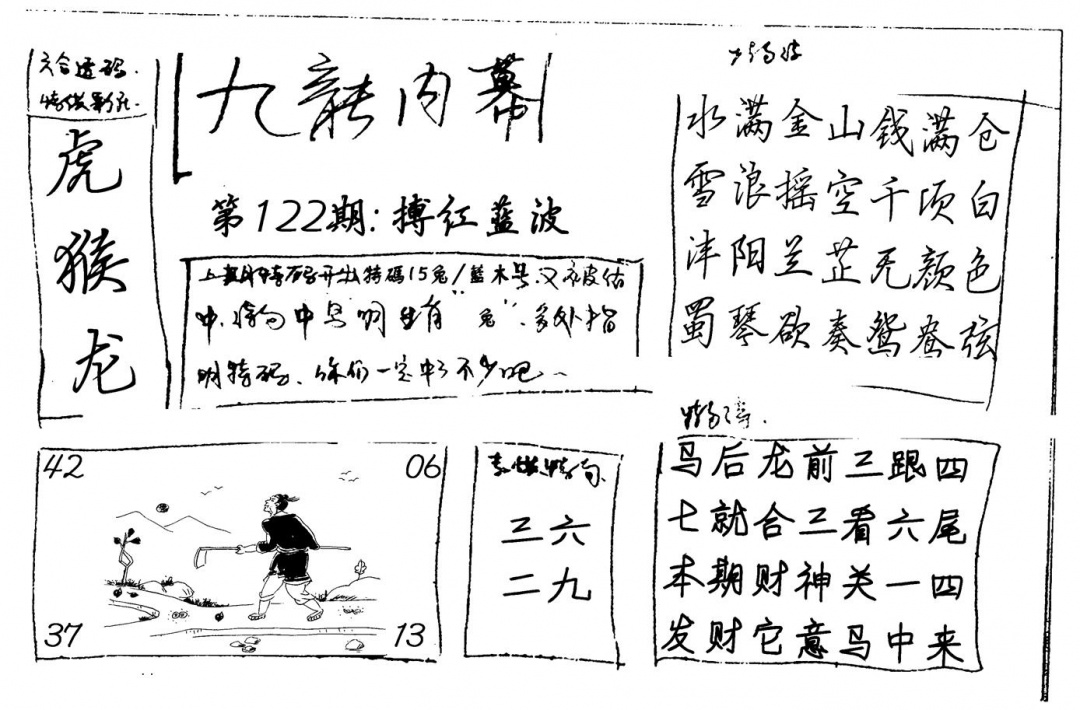 六合透码
虎
猴
龙
九龍内幕
第122期:搏红蓝波
上期特码开出特碼15兔/藍木号又被估
中 中 明生肖“兔”多处指
明特码 你们一定中了不少吧
水满金山钱满仓
雪浪摇空千顷白
沣阳兰芷无颜色
蜀琴欲奏鸳鸯弦
42
06
37
13
三六
二九
马后龙前三跟四
七就合三看六尾
本期财神关一四
发财它意马中来